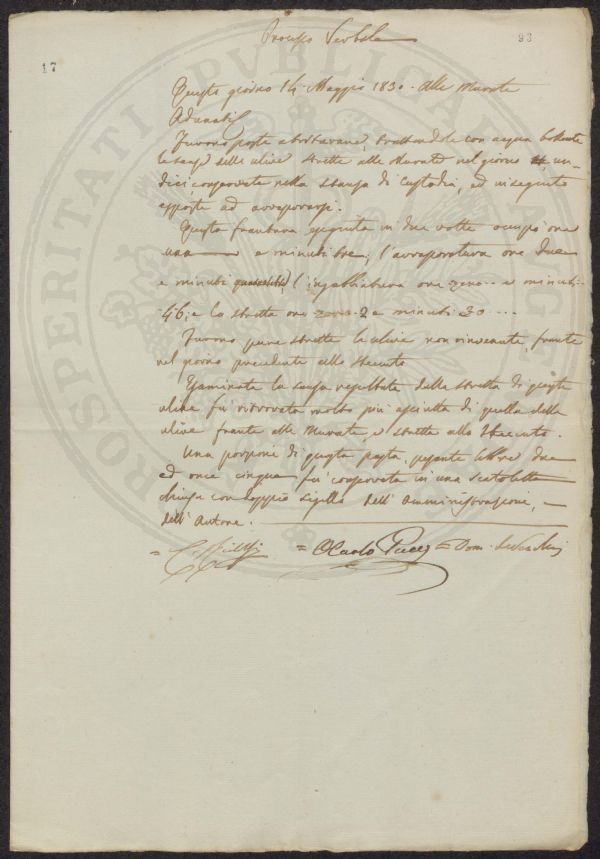 Processo Verbale
93
17
Questo giorno 14 Maggio 1830. alle Murate
Adunatisi
Furono poste a bottarane, trattandole con acqua bollente
le sanse delle ulive strette alle Murate nel giorno un-
dici, conservate nella stanza di Custodia, ed in seguito
esposte ad
Questa frantura eseguita in due volte occupò ore
una e minuti tre; l' ore due
e minuti l' ore zero e minuti
46, e la stretta ore 2 e minuti 30
Furono pure strette le ulive non rinvenute, frante
nel giorno precedente allo Steccuto
Esaminata la sansa resultata dalla stretta di queste
ulive fù ritrovata molto più asciutta di quella delle
ulive frante alle Murate, e strette allo Steccuto.
Una porzione di questa pasta pesante libbre due
ed once cinque fù conservata in una scatoletta
chiusa con doppio sigillo dell' Amministrazione, e
dell' Autore.
= = Carlo Pucci = Dom.
PROSPERITATI PVBLICAE AVGENDAE